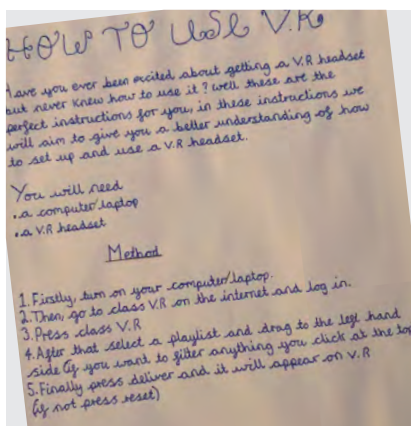 HOW TO USE V.R
Have you ever been excited about getting a V.R headset
but never knew how to use it? well these are the
perfect instructions for you, in these instructions we
will aim to give you a better understanding of how
to set up and use a V.R headset.
You will need
• a computer/laptop
• a V.R headset
Method
1. Firstly, turn on your computer/laptop.
2. Then, go to class V.R on the internet and log in.
3. Press class V.R
4. After that select a playlist and drag to the left hand
side (if you want to filter anything you click at the top
5. Finally press deliver and it will appear on V.R
(if not press reset)